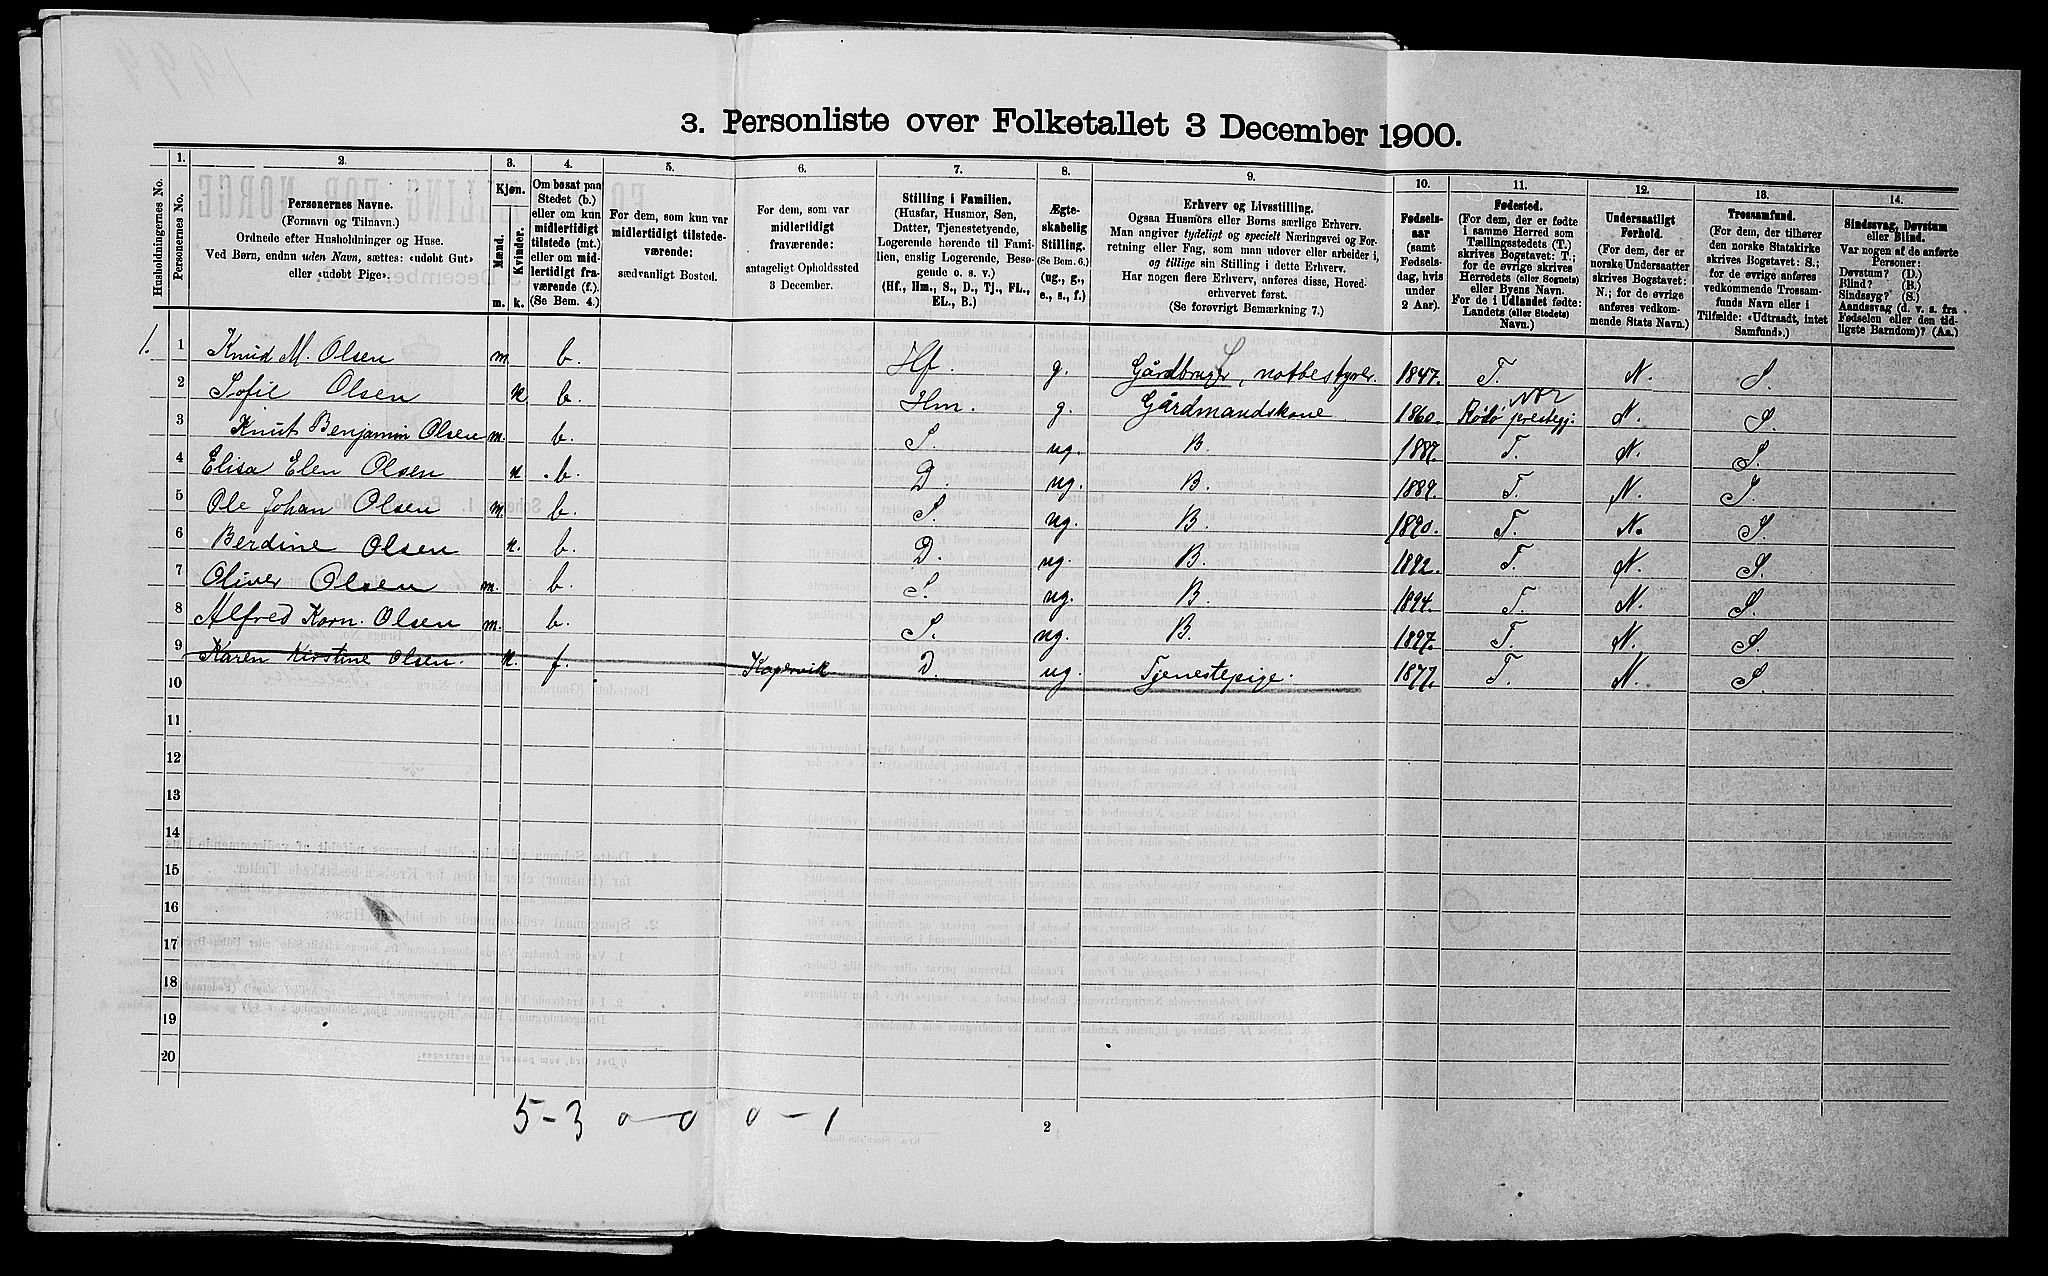 3. Personliste over Folketallet 3 December 1900.
Husholdningernes No.
1.
Personernes No.
2.
Personernes Navne.
(Fornavn og Tilnavn.)
Ordnede efter Husholdninger og Huse.
Ved Børn, endnu uden Navn, sættes: «udøbt Gut»
eller «udøbt Pige».
3.
Kjøn.
Mænd.
Kvinder.
m. k.
4.
Om bosat paa
Stedet (b.)
eller om kun
midlertidigt
tilstede (mt.)
eller om mid-
lertidigt fra-
værende (f.).
(Se Bem. 4.)
5.
For dem, som kun var
midlertidigt tilstede-
værende:
sædvanligt Bosted.
6.
For dem, som var
midlertidigt
fraværende:
antageligt Opholdssted
3 December.
7.
Stilling i Familien.
(Husfar, Husmor, Søn,
Datter, Tjenestetyende,
Logerende hørende til Fami-
lien, enslig Logerende, Besø-
gende o. s. v.)
(Hf., Hm., S., D., Tj., FL.,
EL., B.)
8.
Ægte-
skabelig
Stilling.
(Se Bem. 6.)
(ug., g.,
e., s., f.)
9.
Erhverv og Livsstilling.
Ogsaa Husmors eller Børns særlige Erhverv.
Man angiver tydeligt og specielt Næringsvei og For-
retning eller Fag, som man udøver eller arbeider i,
og tillige sin Stilling i dette Erhverv.
Har nogen flere Erhverv, anføres disse, Hoved-
erhvervet først.
(Se forøvrigt Bemærkning 7.)
10.
Fødsels-
aar
(samt
Fødsels-
dag, hvis
under
2 Aar).
11.
Fødested.
(For dem, der er fødte
i samme Herred som
Tællingsstedets (T.)
skrives Bogstavet: T.;
for de øvrige skrives
Herredets (eller Sognets)
eller Byens Navn.
For de i Udlandet fødte:
Landets (eller Stedets)
Navn.)
12.
Undersaatligt
Forhold.
(For dem, der er
norske Undersaatter
skrives Bogstavet:
N.; for de øvrige
anføres vedkom-
mende Stats Navn.)
13.
Trossamfund.
(For dem, der tilhører
den norske Statskirke
skrives Bogstavet: S.;
for de øvrige anføres
vedkommende Trossam-
funds Navn eller i
Tilfælde: «Udtraadt, intet
Samfund».)
14.
Sindssvag, Døvstum
eller Blind.
Var nogen af de anførte
Personer:
Døvstum? (D.)
Blind? (B.)
Sindssyg? (S.)
Aandssvag (d. v. s. fra
Fødselen eller den tid-
ligste Barndom)? (Aa.)
1. 1 Knud M. Olsen m. b. Hf. g. Gårdbruger S, notbestyrer. 1847. T. N. S.
2 Sofie Olsen k b. Hm. g. Gårdmandskone 1860. Rødø prestegj. N. S.
3 Knut Benjamin Olsen m. b. S. ug. B. 1887. T. N. S.
4 Elisa Elen Olsen k . b. D. ug. B. 1889. T. N. S.
5 Ole Johan Olsen m. b. S. ug. B. 1890. T. N. S.
6 Berdine Olsen k. b. D. ug. B. 1892. T. N. S.
7 Oliver Olsen m. b. S. ug. B. 1894. T. N. S.
8 Alfred Korn. Olsen m. b. S. ug. B. 1897. T. N. S.
9 Karen Kirstine Olsen. k. f. Kopervik D. ug. Tjenestepige. 1877. T. N. S.
10
11
12
13
14
15
16
17
18
19
20
5 - 3 0 - 0 0 - 1
2